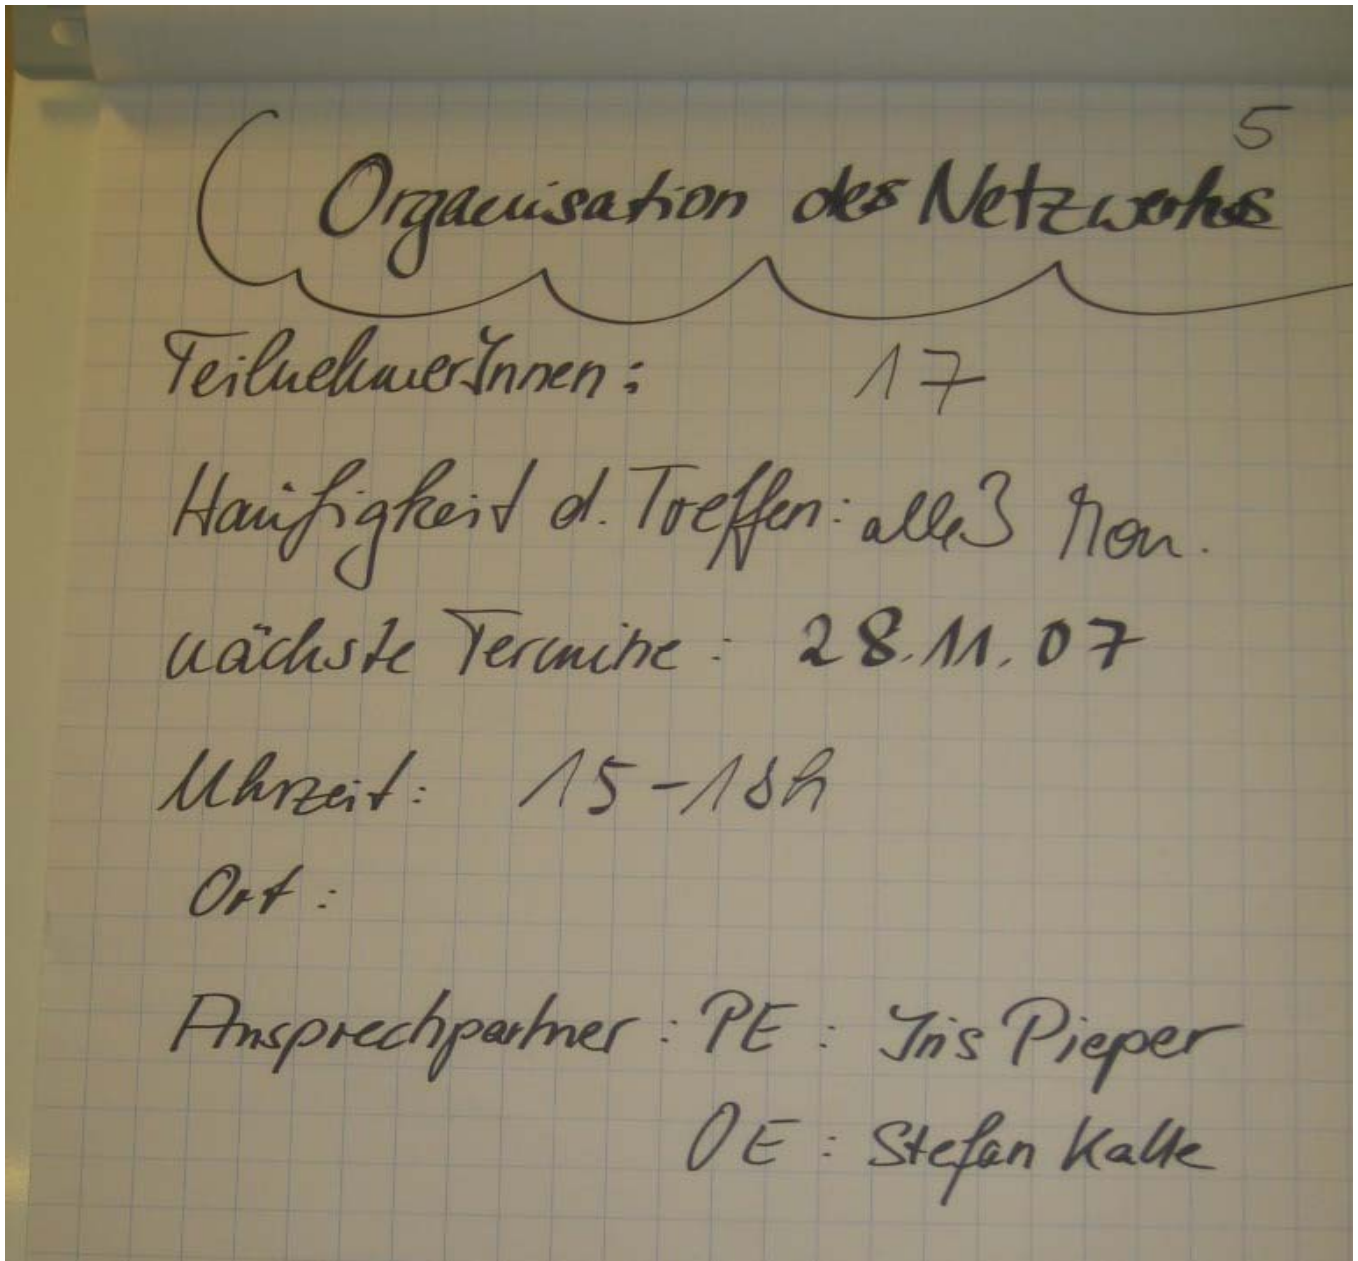 5
Organisation des Netzwerkes
TeilnehmerInnen: 17
Häufigkeit d. Treffen: alle 3 Mon.
nächste Termine: 28.11.07
Uhrzeit: 15-18h
Ort:
Ansprechpartner: PE: Iris Pieper
OE: Stefan